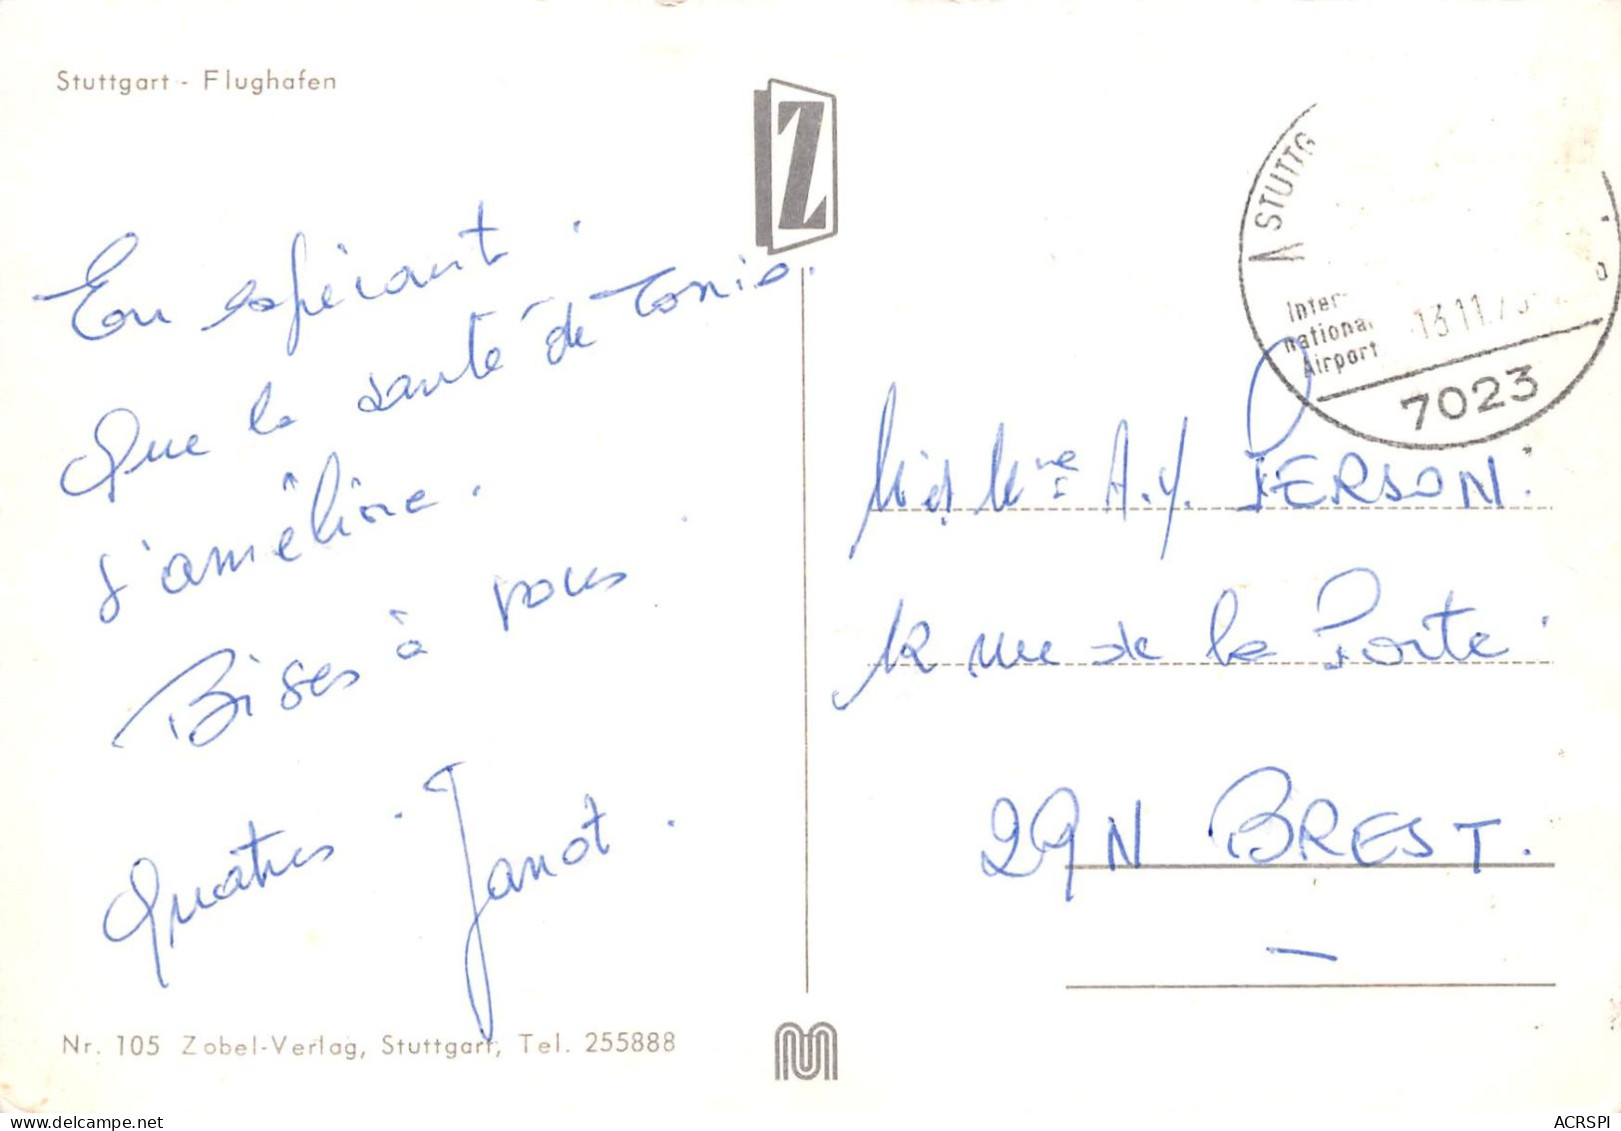 Stuttgart - Flughafen
Z
En espérant
que la santé de Tonio
s'améliore.
Bises à vous
quatres. Janot.
Nr. 105 Zobel-Verlag, Stuttgart, Tel. 255888
STUTTG
Inter-
national
Airport
13.11.7
7023
A.Y. PERSON.
12 rue de la Porte
29N BREST.
www.delcampe.net
ACRSPI